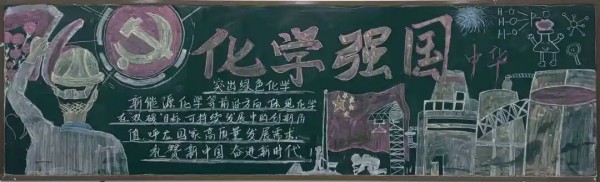 化学强国
中华
突出绿色化学
新能源化学等前沿方向,体现化学
在"双碳"目标、可持续发展中的创新价
值,呼应国家高质量发展需求,
礼赞新中国 奋进新时代!